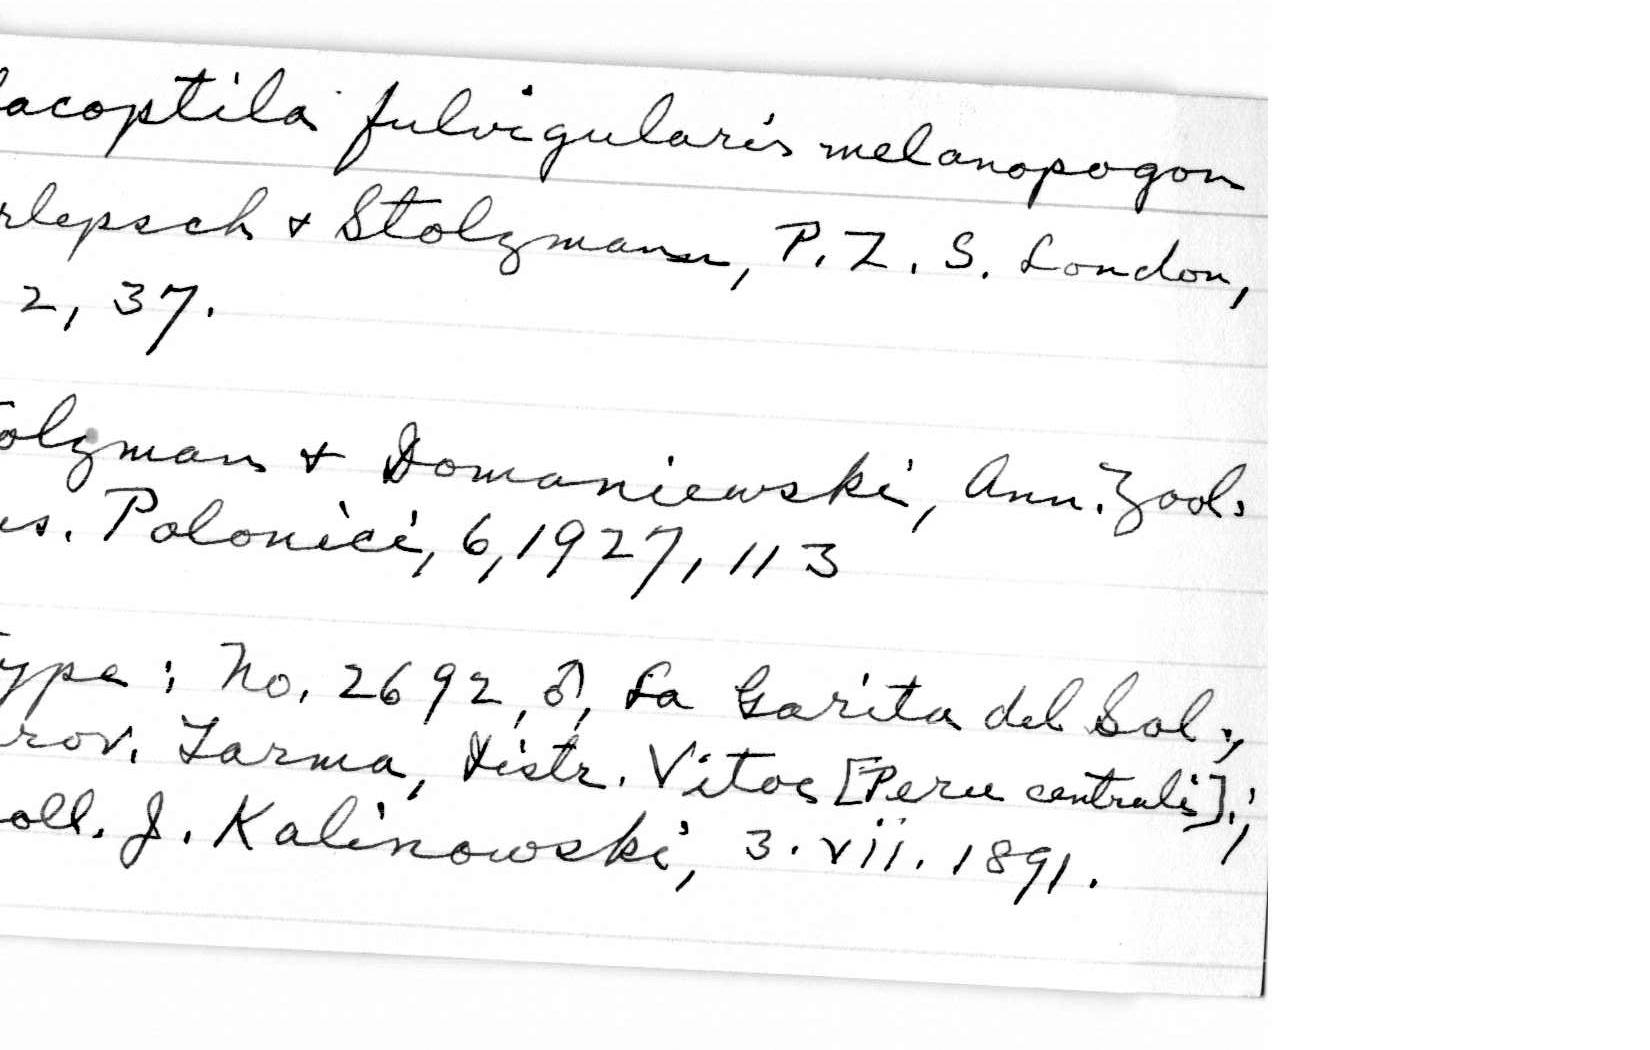 lacoptila fulvigularis melanopogon
rlepsch & Stolzmann, P. Z. S. London,
2, 37.
olzman & Domaniewski, Ann. Zool.
us. Polonici, 6, 1927, 113
ype: No. 2692, ♂, La Garita del Sol.,
rov. Tarma, distr. Vitoc [Peru centralis].;
oll. J. Kalinowski, 3. vii. 1891.